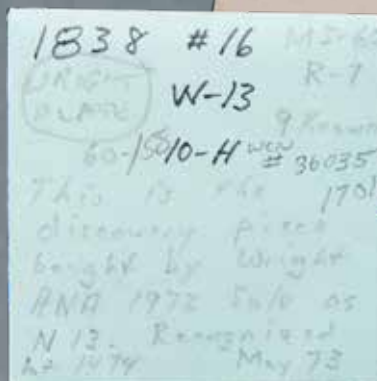 1838 #16 MS-65
WRIGHT R-7
PLATE W-13
9 Known
60-150 10-H WCN # 36035
This is the 1701
discovery piece
bought by Wright
ANA 1973 Sale as
N 13. Recognized
Lot 1474 May 73